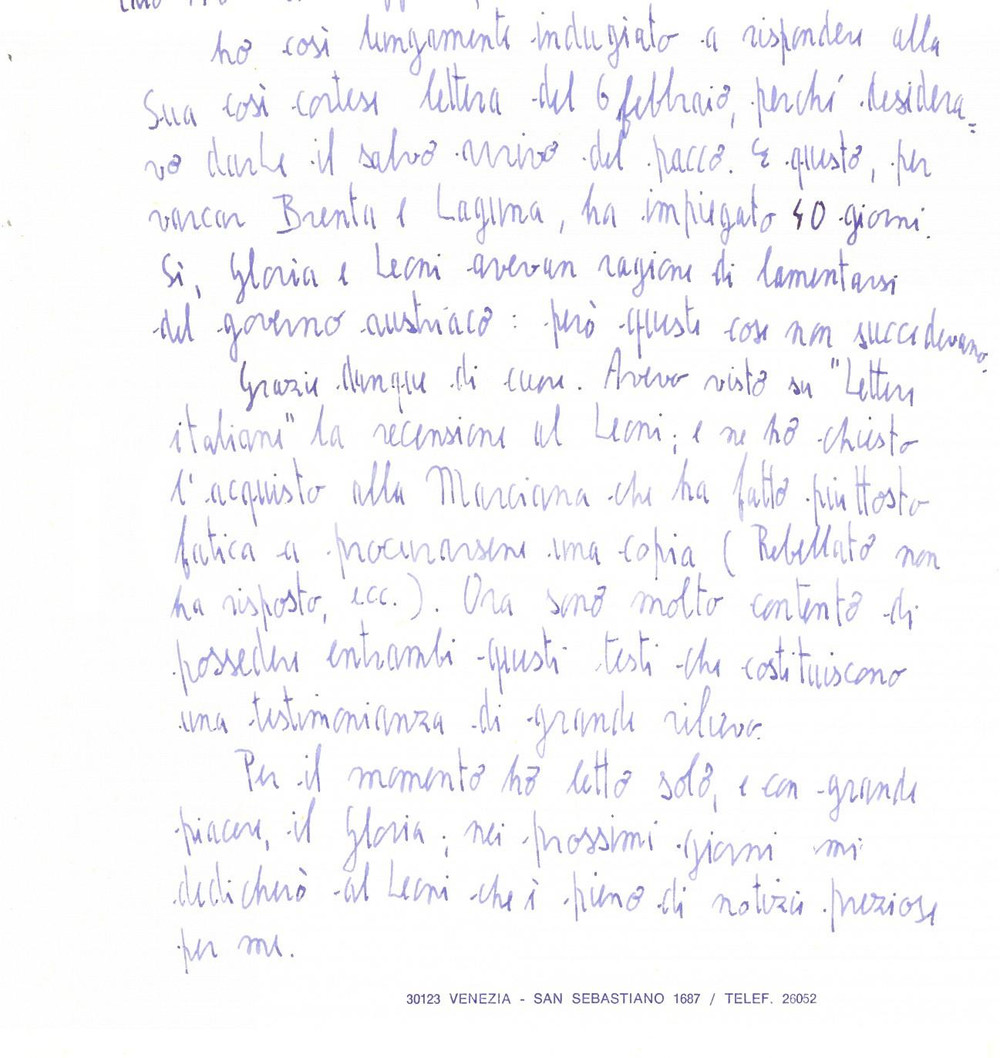 ho così lungamente indugiato a rispondere alla
Sua così cortese lettera del 6 febbraio, perché desidera=
vo darLe il salvo arrivo del pacco. E questo, per
varcar Brenta e Laguna, ha impiegato 40 giorni.
Sì, Gloria e Leoni avevan ragione di lamentarsi
del governo austriaco : però queste cose non succedevano.
Grazie dunque di cuore. Avevo visto su "Lettere
italiane" la recensione al Leoni; e ne ho chiesto
l'acquisto alla Marciana che ha fatto piuttosto
fatica a procurarsene una copia (Rebellato non
ha risposto, ecc.). Ora sono molto contento di
possedere entrambi questi testi che costituiscono
una testimonianza di grande rilievo.
Per il momento ho letto solo, e con grande
piacere, il Gloria; nei prossimi giorni mi
dedicherò al Leoni che è pieno di notizie preziose
per me.
30123 VENEZIA - SAN SEBASTIANO 1687 / TELEF. 26052